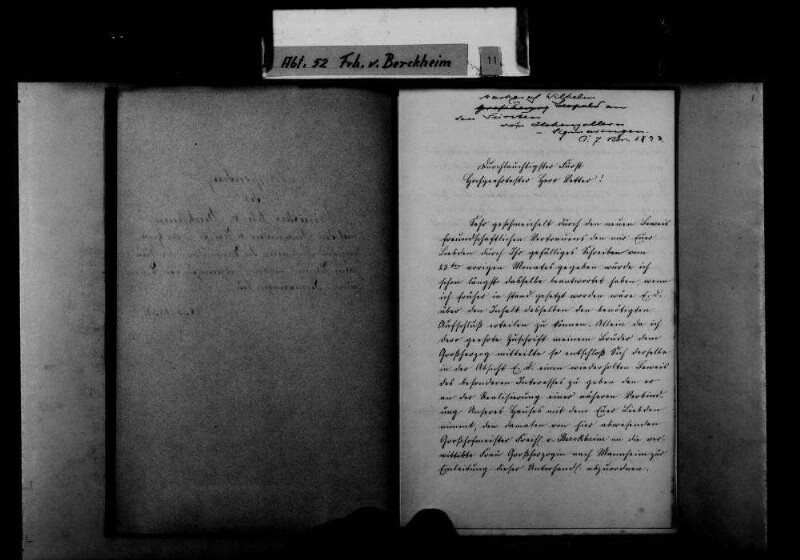 Abt. 52 Frh. v. Berckheim
11
Markgraf Wilhelm
Großherzog Leopold an
den Fürsten
von Hohenzollern
- Sigmaringen.
Durchlauchtigster Fürst
Hochgeehrtester Herr Vetter!
Sehr geschmeichelt durch den neuen Beweis
freundschaftlichen Vertrauens den mir Euer
Liebden durch Ihr gefälliges Schreiben vom
23ten vorigen Monates gegeben würde ich
schon längst dasselbe beantwortet haben, wenn
ich früher in stand gesetzt worden wäre E. L.
über den Inhalt desselben den benötigten
Aufschluß erteilen zu können. Allein da ich
dero geehrte Zuschrift meinem Bruder dem
Großherzog mitteilte so entschloß Sich derselbe
in der Absicht E. L. einen wiederholten Beweis
des besonderen Interesses zu geben den er
an der Realisierung einer näheren Verbind-
ung Unseres Hauses mit dem Euer Liebden
nimmt, den damalen von hier abwesenden
Großhofmeister Freih. v. Berckheim an die ver-
wittibte Frau Großherzogin nach Mannheim zur
Einleitung dieser Unterhandl. abzuordnen.